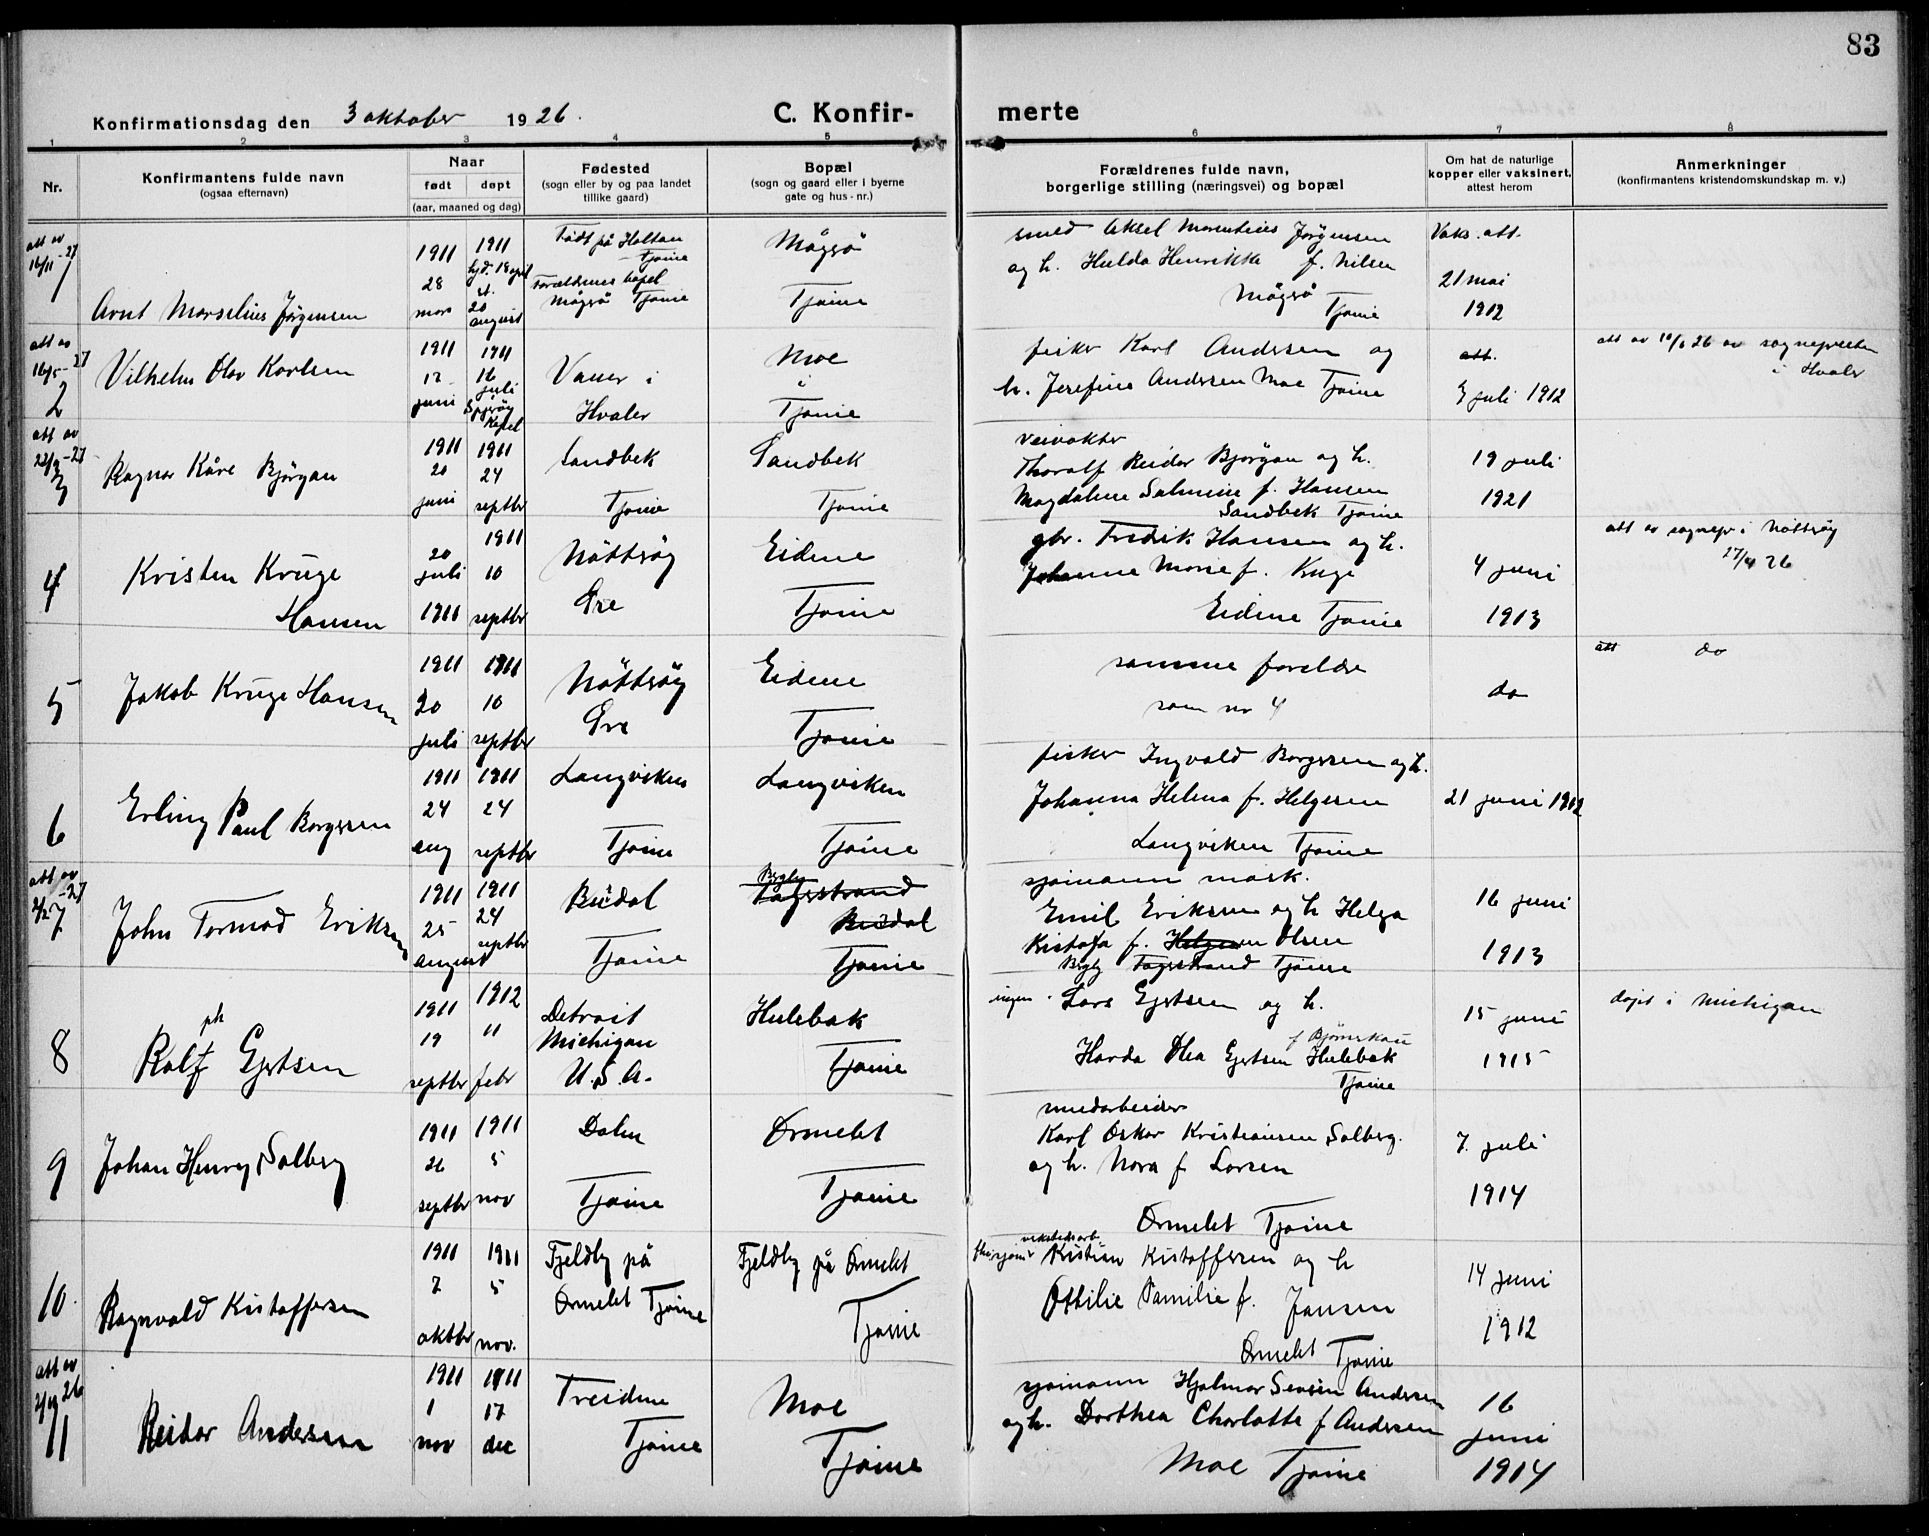 83
Konfirmationsdag den 3 oktober 1926.
C. Konfir-
merte
1 2 3 4 5 6 7 8
Nr.
Konfirmantens fulde navn
(ogsaa efternavn)
Naar
født døpt
(aar, maaned og dag)
Fødested
(sogn eller by og paa landet
tillike gaard)
Bopæl
(sogn og gaard eller i byerne
gate og hus-nr.)
Forældrenes fulde navn,
borgerlige stilling (næringsvei) og bopæl
Om hat de naturlige
kopper eller vaksinert,
attest herom
Anmerkninger
(konfirmantens kristendomskundskap m. v.)
att av
16/11 -27
1
Arnt Marselius Jørgensen
1911
28
mars
1911
hjd. 18 april
st.
20
august
Født på Holtan
Tjøme
Forældrenes bopel
Mågerø Tjøme
Mågerø
Tjøme
smed Aksel Jørgensen
og h. Hulda Henrikke f. Nilsen
Mågerø
Tjøme
Vaks. att.
21 mai
1912
att av
16/5 -27
2
Vilhelm Olav Karlsen
1911
12
juni
1911
16
juli
Spjærøy
Kapel
Vauer i
Hvaler
Moe
i
Tjøme
fisker Karl Andersen og
h. Josefine Andersen Moe Tjøme
att.
3 juli 1912
att av 10/6 26 av sognepresten
i Hvaler
att av
22/9 -27
3
Ragnar Kåre Bjørgan
1911
20
juni
1911
24
septbr
Sandbek
Tjøme
Sandbek
Tjøme
veivokter
Thoralf Reidar Bjørgan og h.
Magdalene Salmine f. Hansen
Sandbek Tjøme
19 juli
1921
4
Kristen Kruge
Hansen
20
juli
1911
1911
10
septbr
Nøtterøy
Øre
Eidene
Tjøme
gbr. Fredrik Hansen og h.
Johanne Marie f. Kruge
Eidene Tjøme
4 juni
1913
att av sognepr i Nøtterøy
27/4 26
5
Jakob Kruge Hansen
1911
20
juli
1911
10
septbr
Nøtterøy
Øre
Eidene
Tjøme
samme foreldre
som nr 4
do
att do
6
Erling Paul Borgersen
1911
24
aug
1911
24
septbr
Langviken
Tjøme
Langviken
Tjøme
fisker Ingvald Borgersen og h.
Johanna Helena f. Helgesen
Langviken Tjøme
21 juni 1912
att av
2/2 -27
7
John Tormod Eriksen
1911
25
august
1911
24
septbr
Budal
Tjøme
Bergly
Fagerstrand
Budal
Tjøme
sjømann mask.
Emil Eriksen og h Helga
Kristofa f. Helgesen Olsen
Bergly Fagerstrand Tjøme
16 juni
1913
8
ph
Ralf Gjertsen
1911
19
septbr
1912
11
febr
Detroit
Michigan
U.S.A.
Hulebak
Tjøme
ingen. Lars Gjertsen og h.
f Bjørnskau
Harda Thea Gjertsen Hulebak
Tjøme
15 juni
1915
døpt i Michigan
9
Johan Henry Solberg
1911
26
septbr
1911
5
nov
Dalen
Tjøme
Ormelet
Tjøme
murarbeider
Karl Oskar Kristiansen Solberg.
og h. Nora f Larsen
Ormelet Tjøme
7. juli
1914
10
Ragnvald Kristoffersen
1911
7
oktbr
1911
5
nov.
Fjeldby på
Ormelet Tjøme
Fjeldby på Ormelet
Tjøme
verkstedsarb
Kristian Kristoffersen og h
Othilie Pamilie f. Jansen
Ormelet Tjøme
14 juni
1912
att av
2/11 26
11
Reidar Andersen
1911
1
nov
1911
17
dec
Treidene
Tjøme
Moe
Tjøme
sjømann Hjalmar Severin Andersen
og h. Dorthea Charlotte f Andersen
Moe Tjøme
16
juni
1914